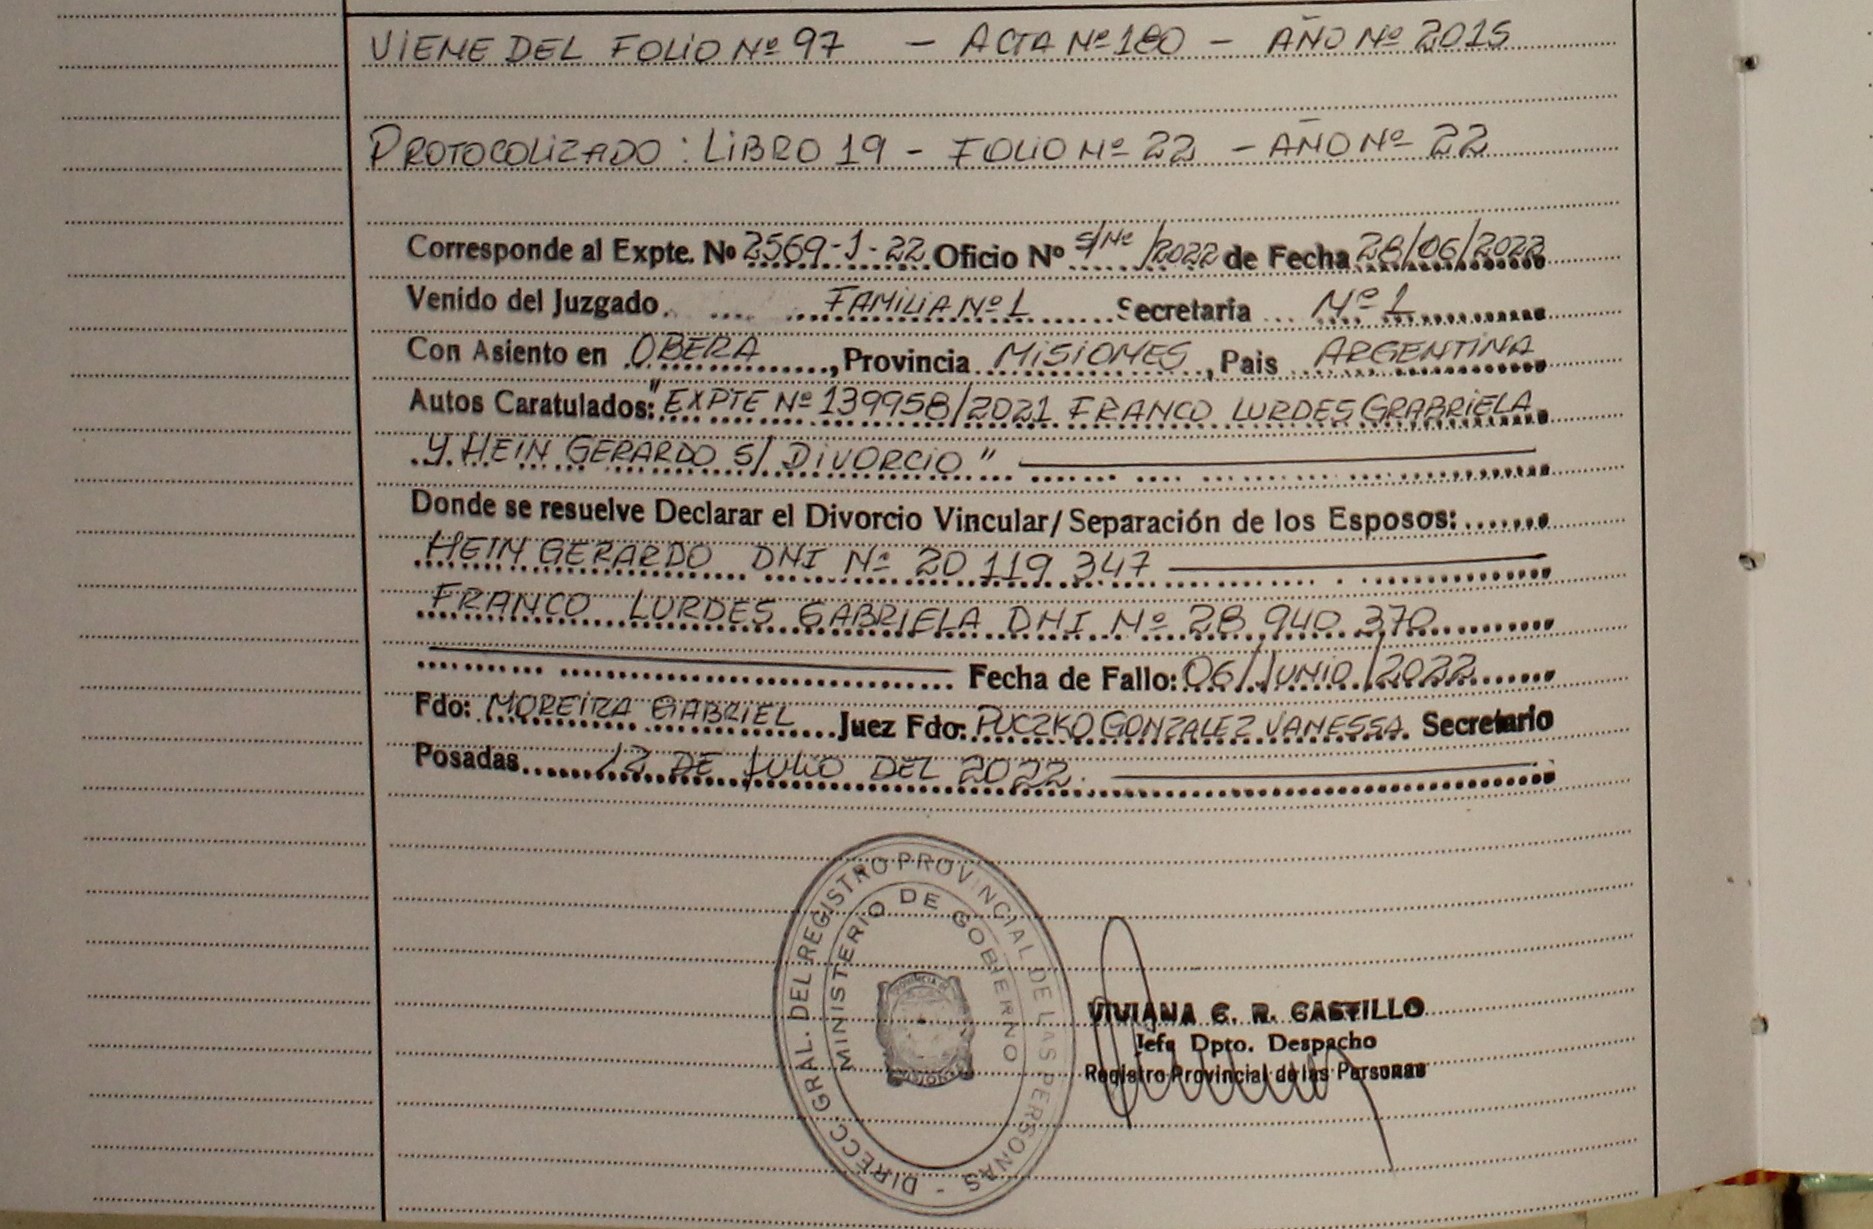 VIENE DEL FOLIO Nº 97 - ACTA Nº 180 - AÑO Nº 2015
PROTOCOLIZADO: LIBRO 19 - FOLIO Nº 22 - AÑO Nº 22
Corresponde al Expte. Nº 2569-1-22 Oficio Nº S/Nº/2022 de Fecha 28/06/2022
Venido del Juzgado FAMILIA Nº 1 Secretaría Nº 1
Con Asiento en OBERA, Provincia MISIONES, Pais ARGENTINA
Autos Caratulados: "EXPTE Nº 139958/2021 FRANCO LURDES GRABRIELA
Y HEIN GERARDO S/ DIVORCIO"
Donde se resuelve Declarar el Divorcio Vincular/Separación de los Esposos:
HEIN GERARDO DNI Nº 20 119 347
FRANCO LURDES GABRIELA DNI Nº 28 940 370
Fecha de Fallo: 06/JUNIO/2022
Fdo: MOREIRA GABRIEL Juez Fdo: PUCZKO GONZALEZ VANESSA. Secretario
Posadas 12 DE JULIO DEL 2022.
DIRECC. GRAL. DEL REGISTRO PROVINCIAL DE LAS PERSONAS -
MINISTERIO DE GOBIERNO
VIVIANA C. R. CASTILLO
Jefa Dpto. Despacho
Registro Provincial de las Personas